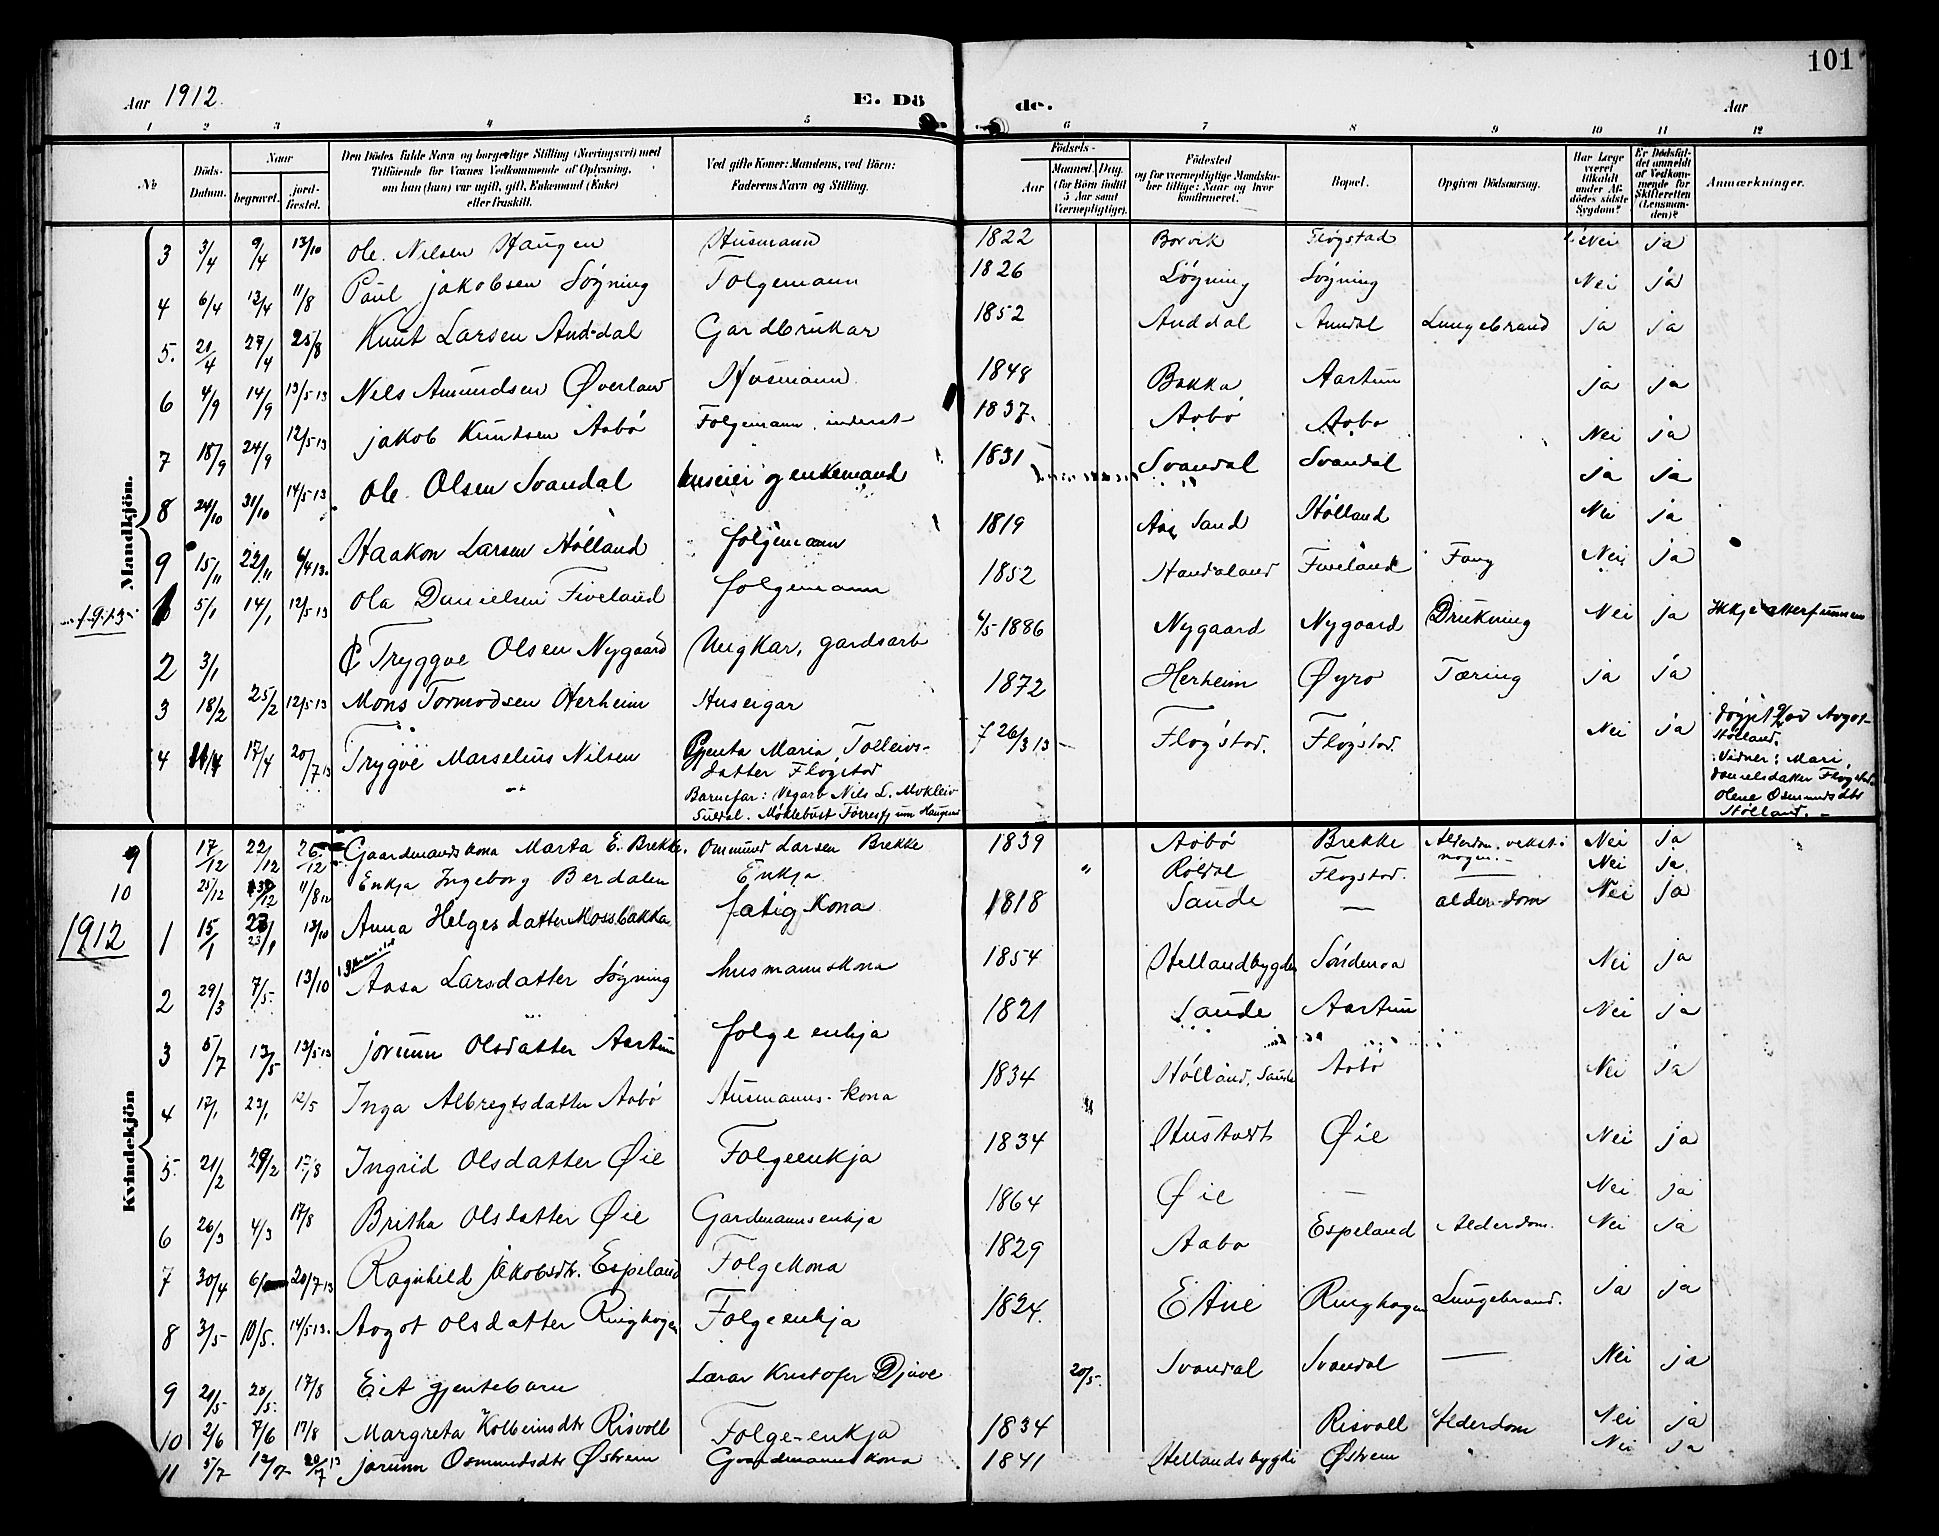 101
Aar 1912. E. Dö de. Aar
1 2 3 4 5 6 7 8 9 10 11 12
№ Döds-Datum. Naar begravet. jordfæstet. Den Dödes fulde Navn og borgerlige Stilling (Næringsvei) med Tilföiende for Voxnes Vedkommende af Oplysning, om han (hun) var ugift, gift, Enkemand (Enke) eller fraskilt. Ved gifte Koner: Mandens, ved Börn: Faderens Navn og Stilling. Födsels- Aar Maaned. Dag. (for Börn indtil 5 Aar samt Værnepligtige). Födested og for værnepligtige Mandskaber tillige: Naar og hvor konfirmeret. Bopæl. Opgiven Dödsaarsag. Har Læge været tilkaldt under Afdödes sidste Sygdom? Er Dödsfaldet anmeldt af Vedkommende for Skifteretten (Lensmanden)? Anmærkninger.
Mandkjön.
3 3/4 9/4 13/10 Ole Nilsen Haugen Husmann 1822 Borvik Fløgstad Nei ja
4 6/4 12/4 11/8 Paul Jakobsen Søgning Folgemann 1826 Søgning Søgning Nei ja
5. 20/4 27/4 25/8 Knut Larsen Anddal Gardbrukar 1852 Anddal Anndal Lungebrand ja ja
6 4/9 14/9 13/5 13 Nils Amundsen Øverland Husmann 1848 Bakka Aartun ja ja
7 18/9 24/9 12/5 13 Jakob Knutsen Aabø Folgemann, inderst 1837. Aabø Aabo Nei ja
8 24/10 31/10 14/5 13 Ole Olsen Svandal huseier g enkemand 1831 Svandal Svandal ja ja
9 15/11 22/11 4/4 13. Haakon Larsen Hølland folgemann 1819 Sand Hølland Nei ja
1913 1 5/1 14/1 12/5 13 Ola Danielsen Fiveland folgemann 1852 Handaland Fiveland Nei ja
2 3/1 Tryggve Olsen Nygaard Ungkar, gardsarb 4/5 1886 Nygaard Nygaard Drukning Nei ja Ikkje atterfunnen
3 18/2 25/2 12/5 13 Mons Tormodsen Herheim Huseigar 1872 Herheim Øyro Tæring ja ja
4 11/4 17/4 20/7 13 Trygve Marselius Nilsen Gjenta Maria Tolleivsdatter Fløgstad f 26/3 13 Fløgstad. Fløgstad. Nei ja døypt av Aagot Hølland.
Barnefar: Vegarb Nils L. Mokleiv Vidner: Mari Danielsdatter Fløgstad
Suldal. Olene Osmundsdtr Hølland.
Kvindekjön
9 17/12 22/12 26/12 Gaardmandskona Marta E. Brekke. Ommund Larsen Brekke 1839 Aabø Brekke Alderdom Nei ja
10 25/12 11/8 12 Enkja Ingeborg Berdalen Enkja Røldal Fløgstad. Nei ja
1912 1 15/1 13/10 Anna Helgesdatter Mossbakka fatig kona 1818 Saude — alderdom Nei ja
2 29/3 7/5. 13/10 Aasa Larsdatter Søgning husmannskona 1854 Hellandbygden Søndenaa Nei ja
3 5/7 13/5 13/5 13 Jorunn Olsdatter Aartun folge enkja 1821 Saude Aartun Nei ja
4 17/1 23/1 12/5 Inga Albregtsdatter Aabø Husmanns-kona 1834 Hølland, Saude Aabø Nei ja
5. 21/2 29/2 17/8 Ingrid Olsdatter Øie Folgeenkja 1834 Hustadt Øie Nei ja
6 26/3 4/3 17/8 Britha Olsdatter Øie Gardmannsenkja 1864 Øie — Nei ja
7 30/4 20/7 13 Ragnhild Jakobsdtr. Espeland Folgekona 1829 Aabo Espeland Alderdom. Nei ja
8 3/5 10/5. 14/5 13. Aagot Olsdatter Ringhagen Folgeenkja 1824. Etne Ringhagen Lungebrand. ja ja
9 20/5 20/5. 17/8 Eit gjentebarn Lærar Kristofer Djuve 20/5. Svandal Svandal — Nei ja
10 2/6 7/6 17/8 Margreta Kolbeinsdtr Risvoll Folge-enkja 1834 Risvoll Alderdom Nei ja
11 5/7 20/7 13 Jorunn Osmundsdtr Østrem Gaardmannskona 1841 Hellandsbygdi Østrem Nei ja